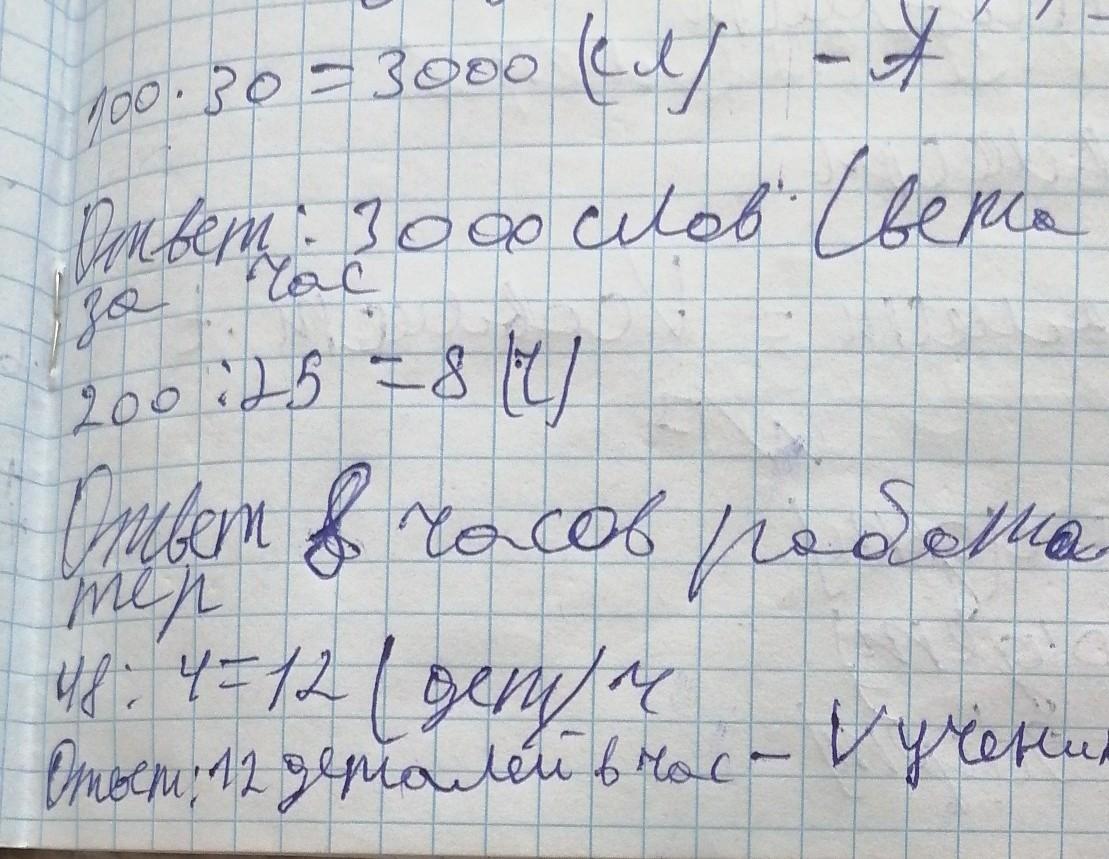 100 · 30 = 3000 (сл) - А
Ответ: 3000 слов (Света
за час
200 : 25 = 8 (ч)
Ответ 8 часов работа
тер
48 : 4 = 12 (дет) ч
Ответ: 12 деталей в час - V ученик